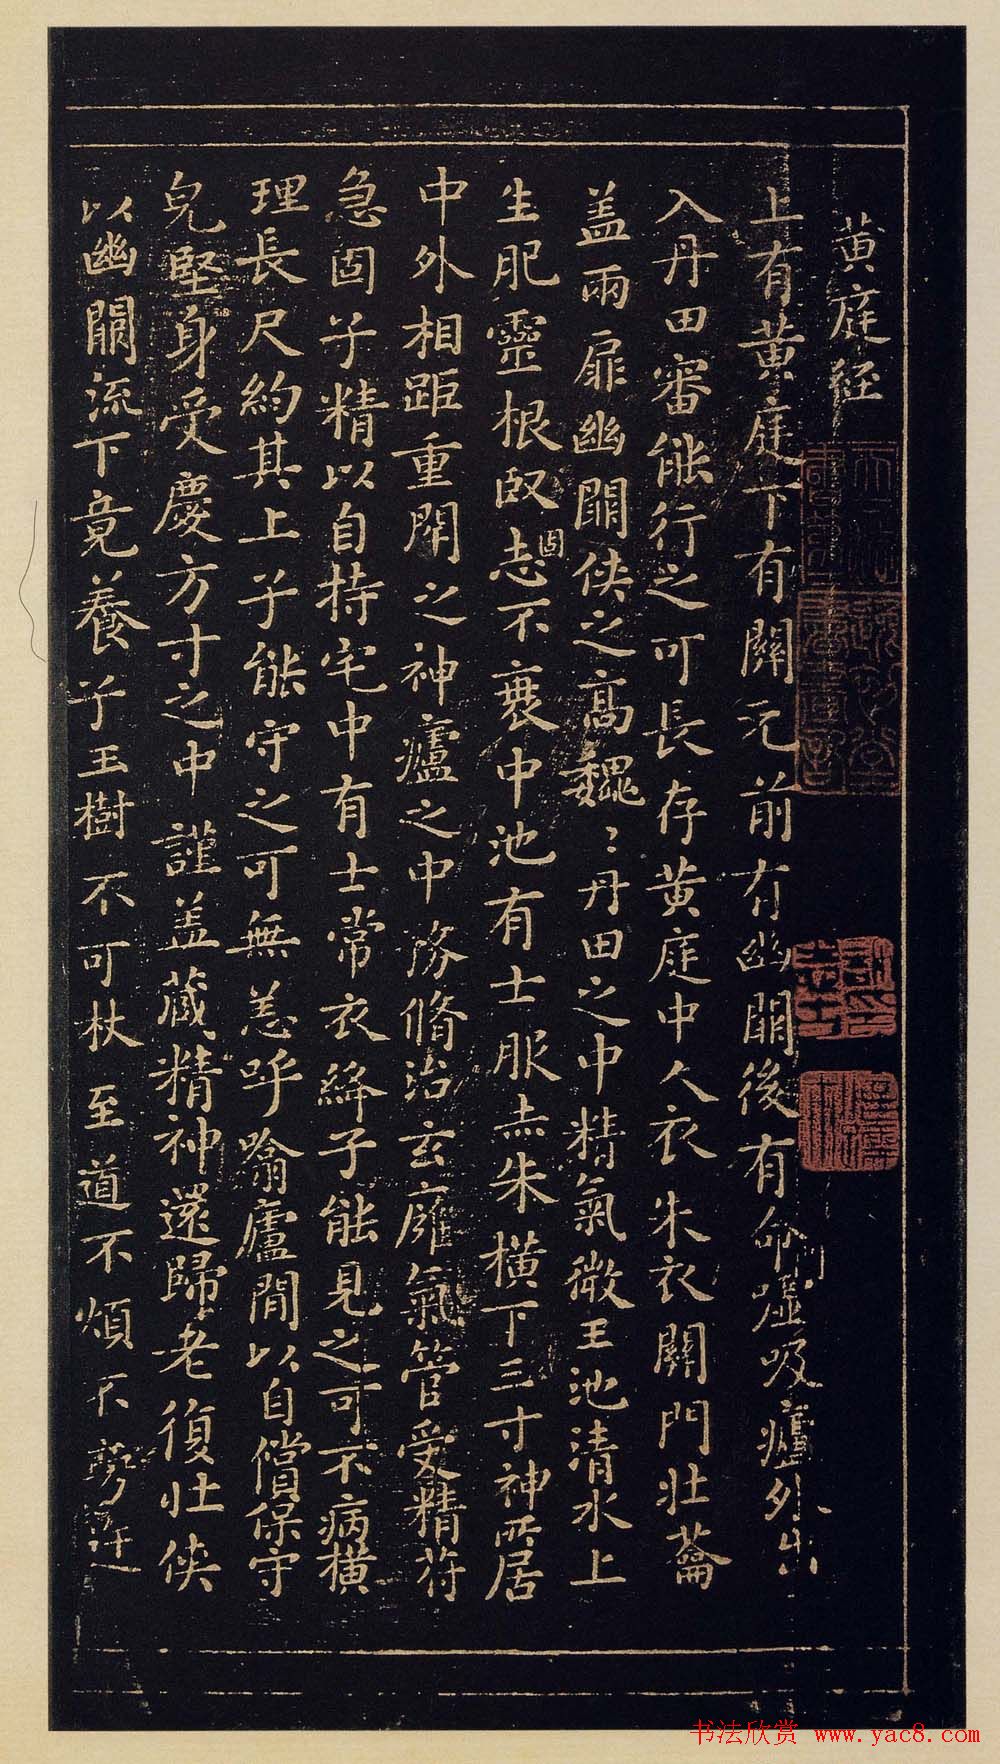 黄庭経
上有黄庭下有關元前有幽闕後有命噓吸廬外出
入丹田審能行之可長存黄庭中人衣朱衣關門壯蘥
盖兩扉幽闕侠之高魏〻丹田之中精氣微玉池清水上
生肥靈根堅固志不衰中池有士服赤朱橫下三寸神所居
中外相距重閇之神廬之中務脩治玄癰氣管受精苻
急固子精以自持宅中有士常衣絳子能見之可不病橫
理長尺約其上子能守之可無恙呼噏廬間以自償保守
皃堅身受慶方寸之中謹盖藏精神還歸老復壯侠
以幽闕流下竟養子玉樹不可杖至道不煩不旁迕
书法欣赏 www.yac8.com